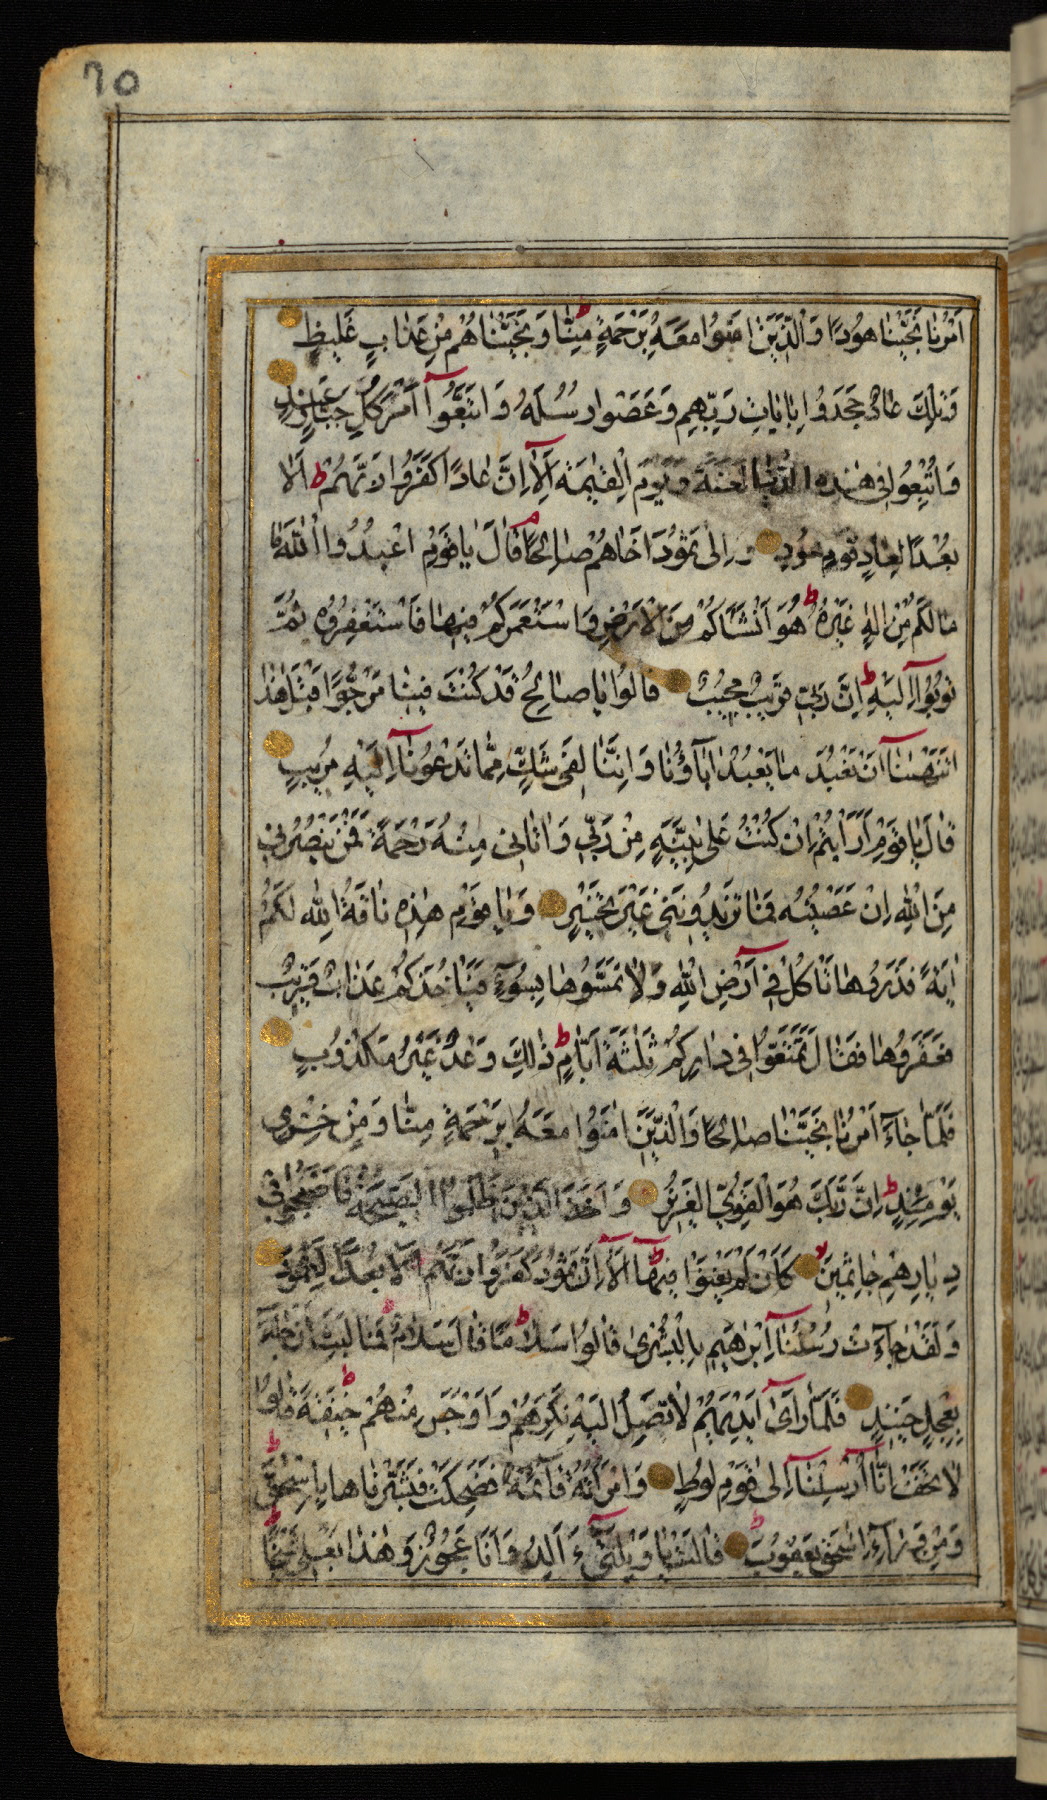 ٦٥
اَمْرُنَا نَجَّيْنَا هُودًا وَالَّذِينَ اٰمَنُوا مَعَهُ بِرَحْمَةٍ مِنَّا وَنَجَّيْنَاهُمْ مِنْ عَذَابٍ غَلِيظٍ
وَتِلْكَ عَادٌ جَحَدُوا بِاٰيَاتِ رَبِّهِمْ وَعَصَوْا رُسُلَهُ وَاتَّبَعُوا اَمْرَ كُلِّ جَبَّارٍ عَنِيدٍ
وَاُتْبِعُوا فِي هٰذِهِ الدُّنْيَا لَعْنَةً وَيَوْمَ الْقِيٰمَةِ اَلَا اِنَّ عَادًا كَفَرُوا رَبَّهُمْ ط اَلَا
بُعْدًا لِعَادٍ قَوْمِ هُودٍ وَاِلٰى ثَمُودَ اَخَاهُمْ صَالِحًا م قَالَ يَا قَوْمِ اعْبُدُوا اللّٰهَ مَا
مَا لَكُمْ مِنْ اِلٰهٍ غَيْرُهُ ط هُوَ اَنْشَاَكُمْ مِنَ الْاَرْضِ وَاسْتَعْمَرَكُمْ فِيهَا فَاسْتَغْفِرُوهُ ثُمَّ
تُوبُوا اِلَيْهِ ط اِنَّ رَبِّي قَرِيبٌ مُجِيبٌ قَالُوا يَا صَالِحُ قَدْ كُنْتَ فِينَا مَرْجُوًّا قَبْلَ هٰذَا
اَتَنْهٰينَا اَنْ نَعْبُدَ مَا يَعْبُدُ اٰبَاؤُنَا وَاِنَّنَا لَفِي شَكٍّ مِمَّا تَدْعُونَا اِلَيْهِ مُرِيبٍ
قَالَ يَا قَوْمِ اَرَاَيْتُمْ اِنْ كُنْتُ عَلٰى بَيِّنَةٍ مِنْ رَبِّي وَاٰتَانِي مِنْهُ رَحْمَةً فَمَنْ يَنْصُرُنِي
مِنَ اللّٰهِ اِنْ عَصَيْتُهُ فَمَا تَزِيدُونَنِي غَيْرَ تَخْسِيرٍ وَيَا قَوْمِ هٰذِهِ نَاقَةُ اللّٰهِ لَكُمْ
اٰيَةً فَذَرُوهَا تَاْكُلْ فِي اَرْضِ اللّٰهِ وَلَا تَمَسُّوهَا بِسُوءٍ فَيَاْخُذَكُمْ عَذَابٌ قَرِيبٌ
فَعَقَرُوهَا فَقَالَ تَمَتَّعُوا فِي دَارِكُمْ ثَلٰثَةَ اَيَّامٍ ط ذٰلِكَ وَعْدٌ غَيْرُ مَكْذُوبٍ
فَلَمَّا جَاءَ اَمْرُنَا نَجَّيْنَا صَالِحًا وَالَّذِينَ اٰمَنُوا مَعَهُ بِرَحْمَةٍ مِنَّا وَمِنْ خِزْيِ
يَوْمِئِذٍ ط اِنَّ رَبَّكَ هُوَ الْقَوِيُّ الْعَزِيزُ وَاَخَذَ الَّذِينَ ظَلَمُوا الصَّيْحَةُ فَاَصْبَحُوا فِي
دِيَارِهِمْ جَاثِمِينَ لا كَاَنْ لَمْ يَغْنَوْا فِيهَا ط اَلَا اِنَّ ثَمُودَ كَفَرُوا رَبَّهُمْ اَلَا بُعْدًا لِثَمُودَ
وَلَقَدْ جَاءَتْ رُسُلُنَا اِبْرٰهِيمَ بِالْبُشْرٰى قَالُوا سَلَامًا ط قَالَ سَلَامٌ ط فَمَا لَبِثَ اَنْ جَاءَ
بِعِجْلٍ حَنِيذٍ فَلَمَّا رَاٰى اَيْدِيَهُمْ لَا تَصِلُ اِلَيْهِ نَكِرَهُمْ وَاَوْجَسَ مِنْهُمْ خِيفَةً ط قَالُوا
لَا تَخَفْ اِنَّا اُرْسِلْنَا اِلٰى قَوْمِ لُوطٍ وَامْرَاَتُهُ قَائِمَةٌ فَضَحِكَتْ فَبَشَّرْنَاهَا بِاِسْحٰقَ ط
وَمِنْ وَرَاءِ اِسْحٰقَ يَعْقُوبَ ط قَالَتْ يَا وَيْلَتٰى ءَاَلِدُ وَاَنَا عَجُوزٌ وَهٰذَا بَعْلِي شَيْخًا ط